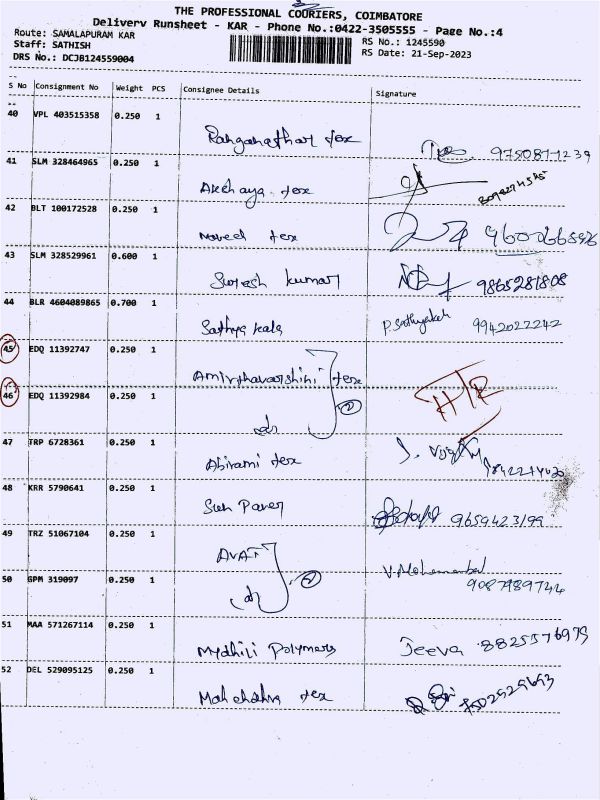 THE PROFESSIONAL COURIERS, COIMBATORE
Delivery Runsheet - KAR - Phone No.:0422-3505555 - Page No.:4
Route: SAMALAPURAM KAR
Staff: SATHISH
DRS No.: DCJB124559004
RS No.: 1245590
RS Date: 21-Sep-2023
S No Consignment No Weight PCS Consignee Details Signature
40 VPL 403515358 0.250 1
Ranganathar tex 9750871239
41 SLM 328464965 0.250 1
Akchaya tex
42 BLT 100172528 0.250 1
Naveed tex
43 SLM 328529961 0.600 1
Suresh kumar 9865281808
44 BLR 4604089865 0.700 1
Sathya kala P. Sathyakala 9942022242
45 EDQ 11392747 0.250 1
Amirthavarshini tex
46 EDQ 11392984 0.250 1
do 2 H/R
47 TRP 6728361 0.250 1
Abirami tex
48 KRR 5790641 0.250 1
Sun Paver 9659423199
49 TRZ 51067104 0.250 1
AVAT
50 GPM 319097 0.250 1
do 2 9087989744
51 MAA 571267114 0.250 1
Mydhili Polymers Jeeva 8825576979
52 DEL 529095125 0.250 1
Mahendra tex